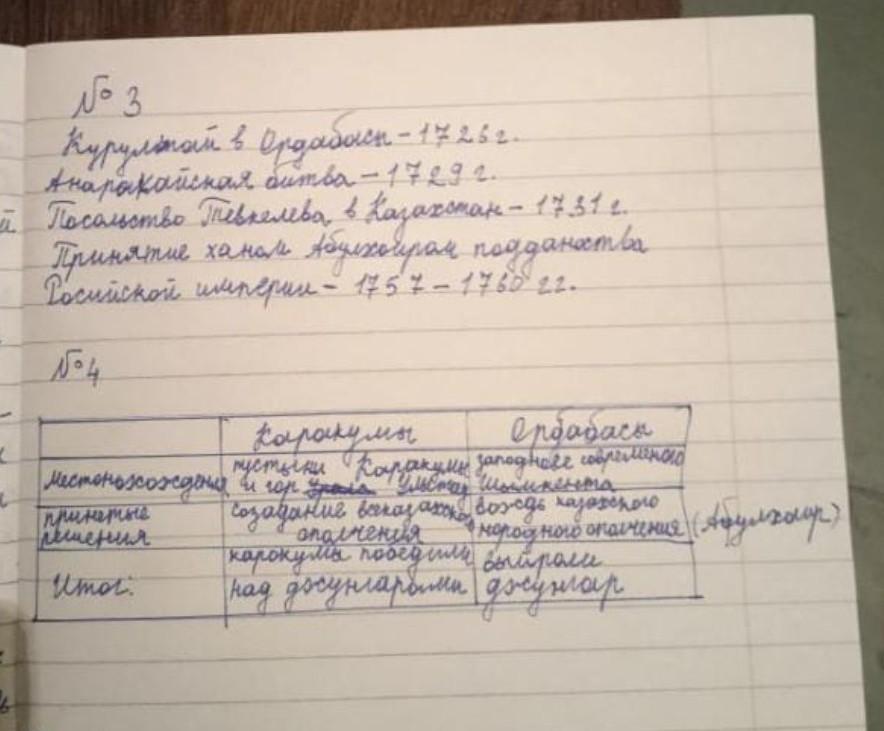 № 3
Курултай в Ордабасы – 1726 г.
Анаракайская битва – 1729 г.
Посольство Тевкелева в Казахстан – 1731 г.
Принятие ханом Абулхаиром подданства
Росийской империи – 1757 – 1760 гг.
№ 4
Каракумы Ордабасы
местонахождения пустыни Каракумы западнее современого
и гор Улытау Шымкента
принятые созадание всеказахского вождь казахского
решения ополчения народного ополчения (Абулхаир)
каракумы победили выйграли
Итог: над джунгарами джунгар